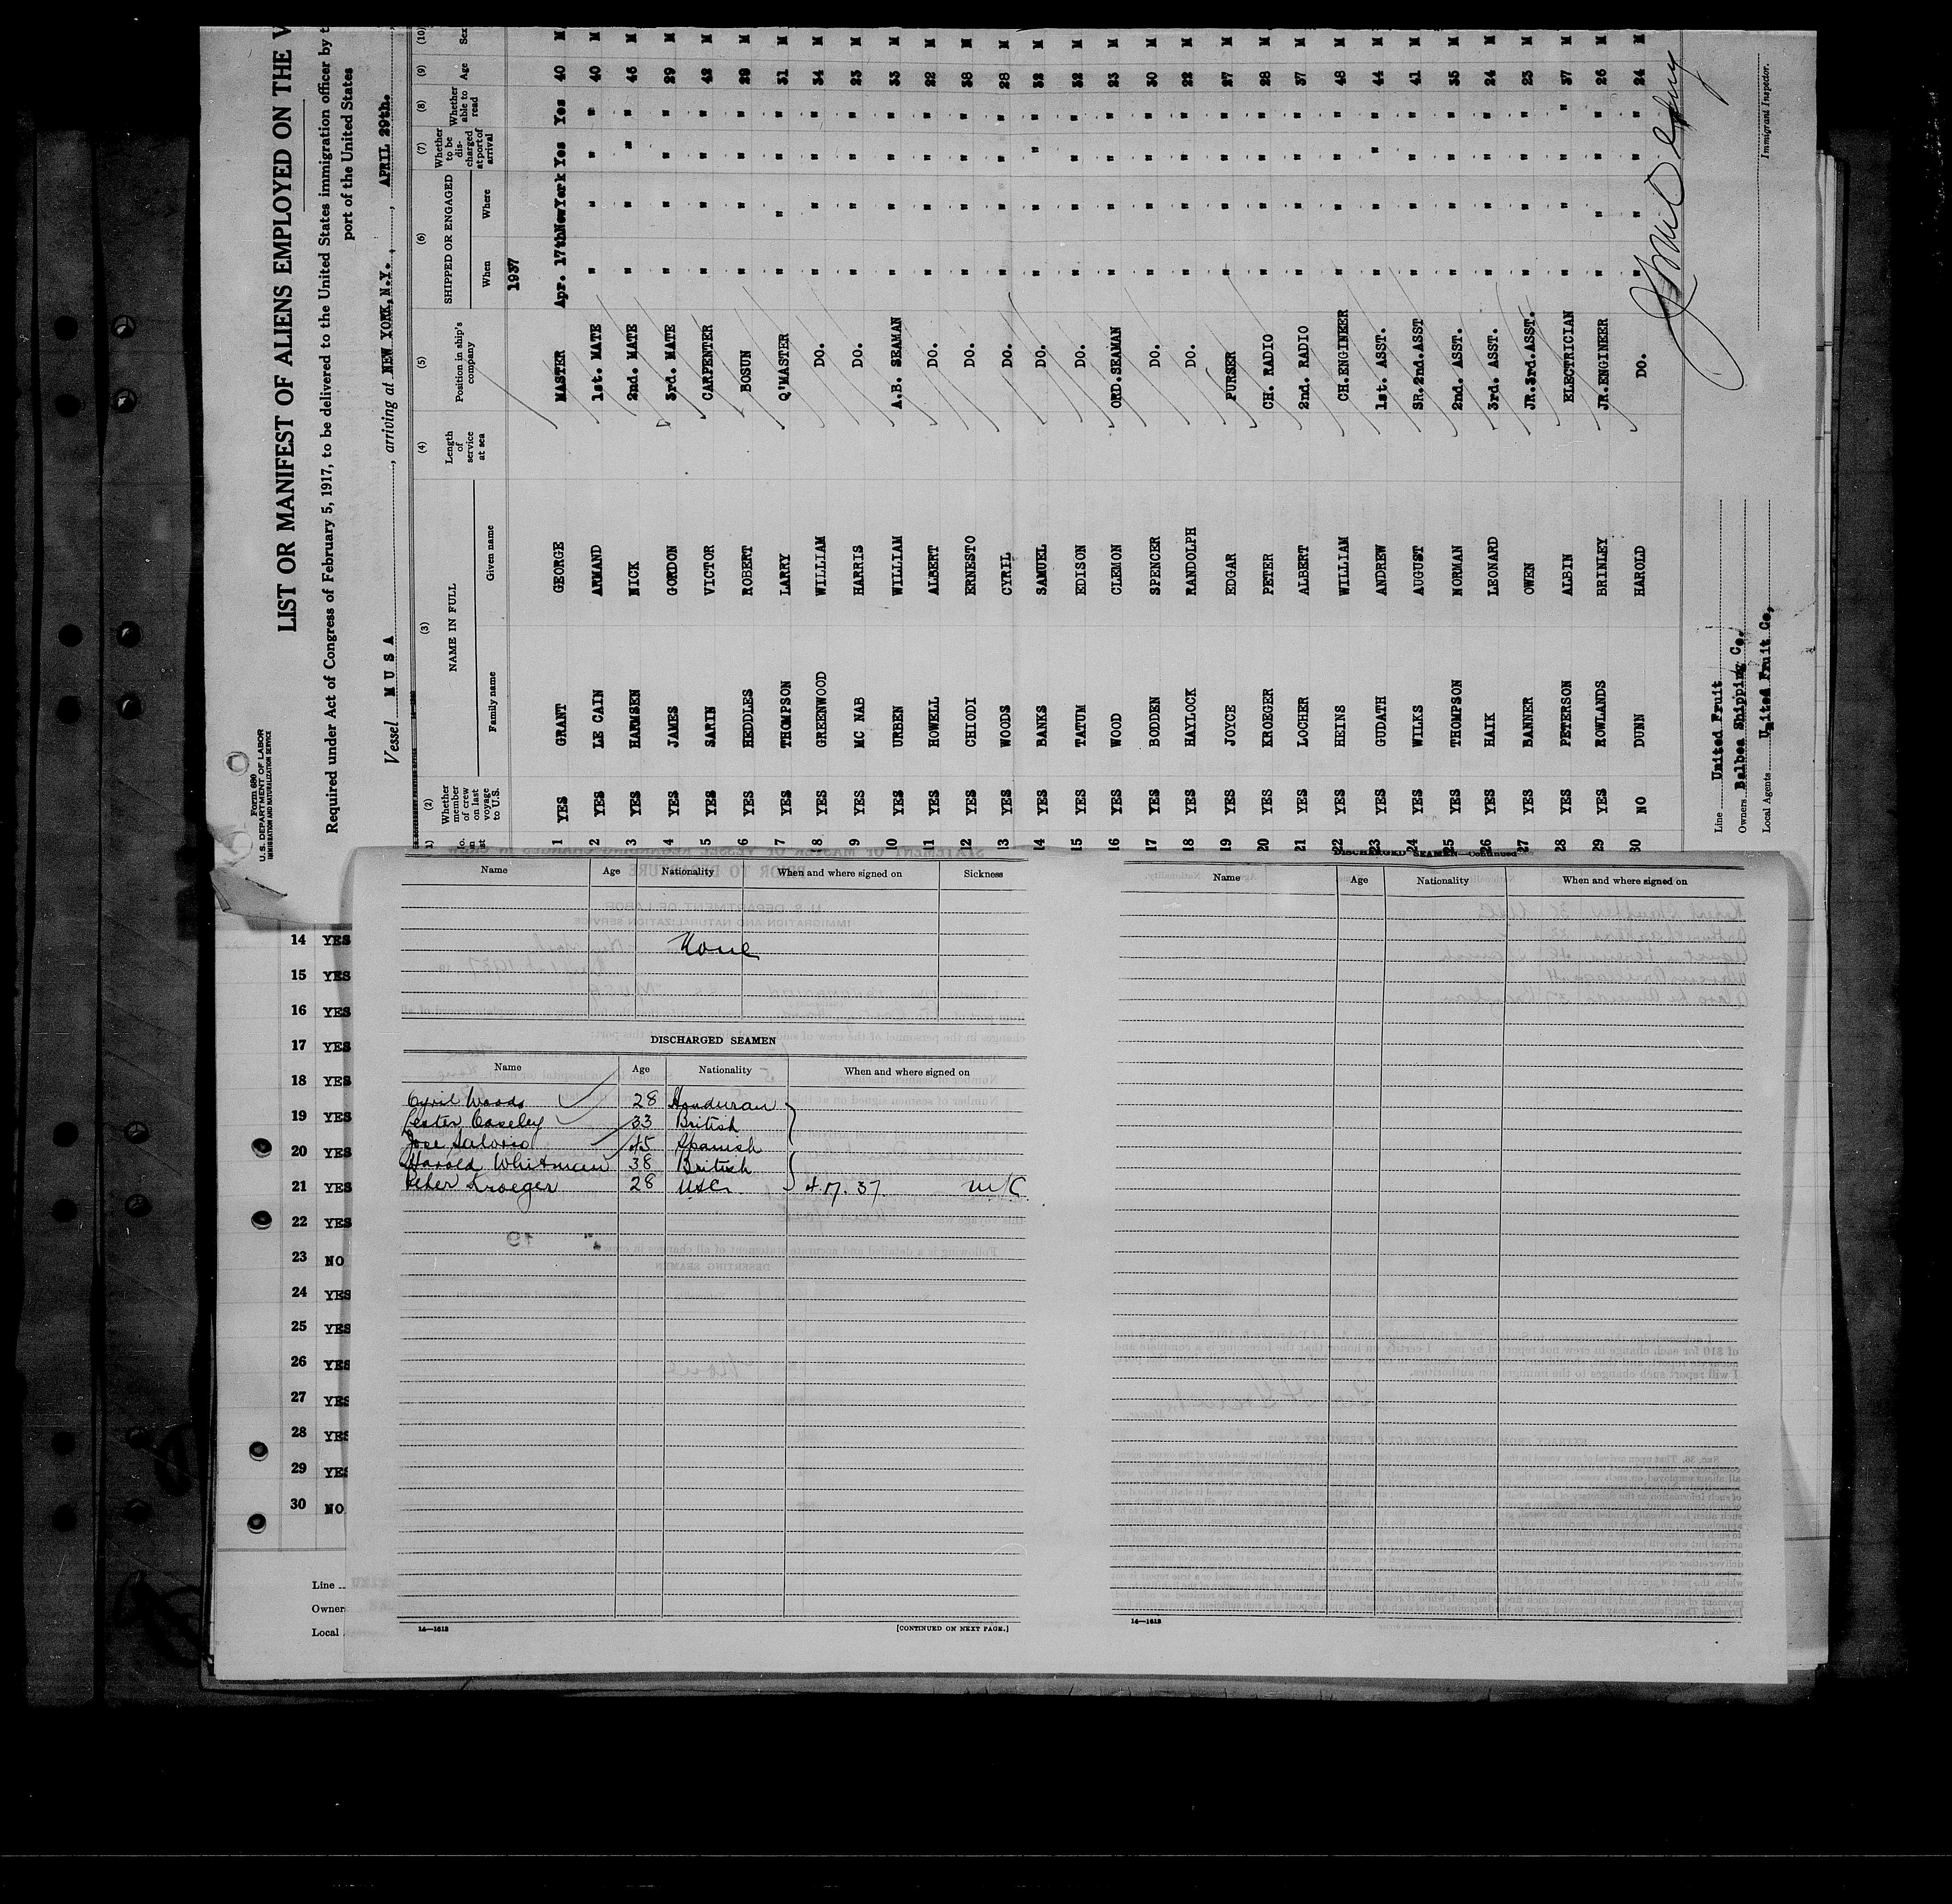 Form 680
U. S. DEPARTMENT OF LABOR
IMMIGRATION AND NATURALIZATION SERVICE
LIST OR MANIFEST OF ALIENS EMPLOYED ON THE V
Required under Act of Congress of February 5, 1917, to be delivered to the United States immigration officer by t
port of the United States
Vessel M U S A, arriving at NEW YORK, N.Y., APRIL 29th.
(2) (3) (4) (5) (6) (7) (8) (9) (10)
Whether member of crew on last voyage to U.S. NAME IN FULL Family name Given name Length of service at sea Position in ship's company SHIPPED OR ENGAGED When Where Whether to be discharged at port of arrival Whether able to read Age Sex
1937
1 YES GRANT GEORGE MASTER Apr. 17th New York Yes Yes 40 M
2 YES LE CAIN ARMAND 1st. MATE " " " " 40 M
3 YES HARMSEN NICK 2nd. MATE " " " " 46 M
4 YES JAMES GORDON 3rd. MATE " " " " 29 M
5 YES SARIN VICTOR CARPENTER " " " " 42 M
6 YES HEDDLES ROBERT BOSUN " " " " 29 M
7 YES THOMPSON LARRY Q'MASTER " " " " 31 M
8 YES GREENWOOD WILLIAM DO. " " " " 34 M
9 YES MC NAB HARRIS DO. " " " " 23 M
10 YES URBEN WILLIAM A.B. SEAMAN " " " " 33 M
11 YES HOWELL ALBERT DO. " " " " 22 M
12 YES CHIODI ERNESTO DO. " " " " 38 M
13 YES WOODS CYRIL DO. " " " " 28 M
14 YES BANKS SAMUEL DO. " " " " 32 M
15 YES TATUM EDISON DO. " " " " 32 M
16 YES WOOD CLEMON ORD.SEAMAN " " " " 23 M
17 YES BODDEN SPENCER DO. " " " " 30 M
18 YES HAYLOCK RANDOLPH DO. " " " " 22 M
19 YES JOYCE EDGAR PURSER " " " " 27 M
20 YES KROEGER PETER CH. RADIO " " " " 28 M
21 YES LOCHER ALBERT 2nd. RADIO " " " " 37 M
22 YES HEINS WILLIAM CH.ENGINEER " " " " 48 M
23 YES GUDATH ANDREW 1st. ASST. " " " " 44 M
24 YES WILKS AUGUST SR.2nd.ASST " " " " 41 M
25 YES THOMPSON NORMAN 2nd. ASST. " " " " 35 M
26 YES HAIK LEONARD 3rd. ASST. " " " " 24 M
27 YES BANNER OWEN JR.3rd.ASST. " " " " 23 M
28 YES PETERSON ALBIN ELECTRICIAN " " " " 37 M
29 YES ROWLANDS BRINLEY JR.ENGINEER " " " " 26 M
30 NO DUNN HAROLD DO. " " " " 24 M
Line United Fruit
Owners Balboa Shipping Co.
Local Agents United Fruit Co,
Immigrant Inspector.
14 YES
15 YES
16 YES
17 YES
18 YES
19 YES
20 YES
21 YES
22 YES
23 NO
24 YES
25 YES
26 YES
27 YES
28 YES
29 YES
30 NO
Line
Owner
Local
Name Age Nationality When and where signed on Sickness
None
DISCHARGED SEAMEN
Name Age Nationality When and where signed on
Cyril Woods 28 Honduran
Lester Caseley 33 British
Jose Salorio 45 Spanish
Harold Whitman 38 British
Peter Kroeger 28 USC 4.17.37. M/C
14—1618 [CONTINUED ON NEXT PAGE.]
DISCHARGED SEAMEN—Continued
Name Age Nationality When and where signed on
14—1618